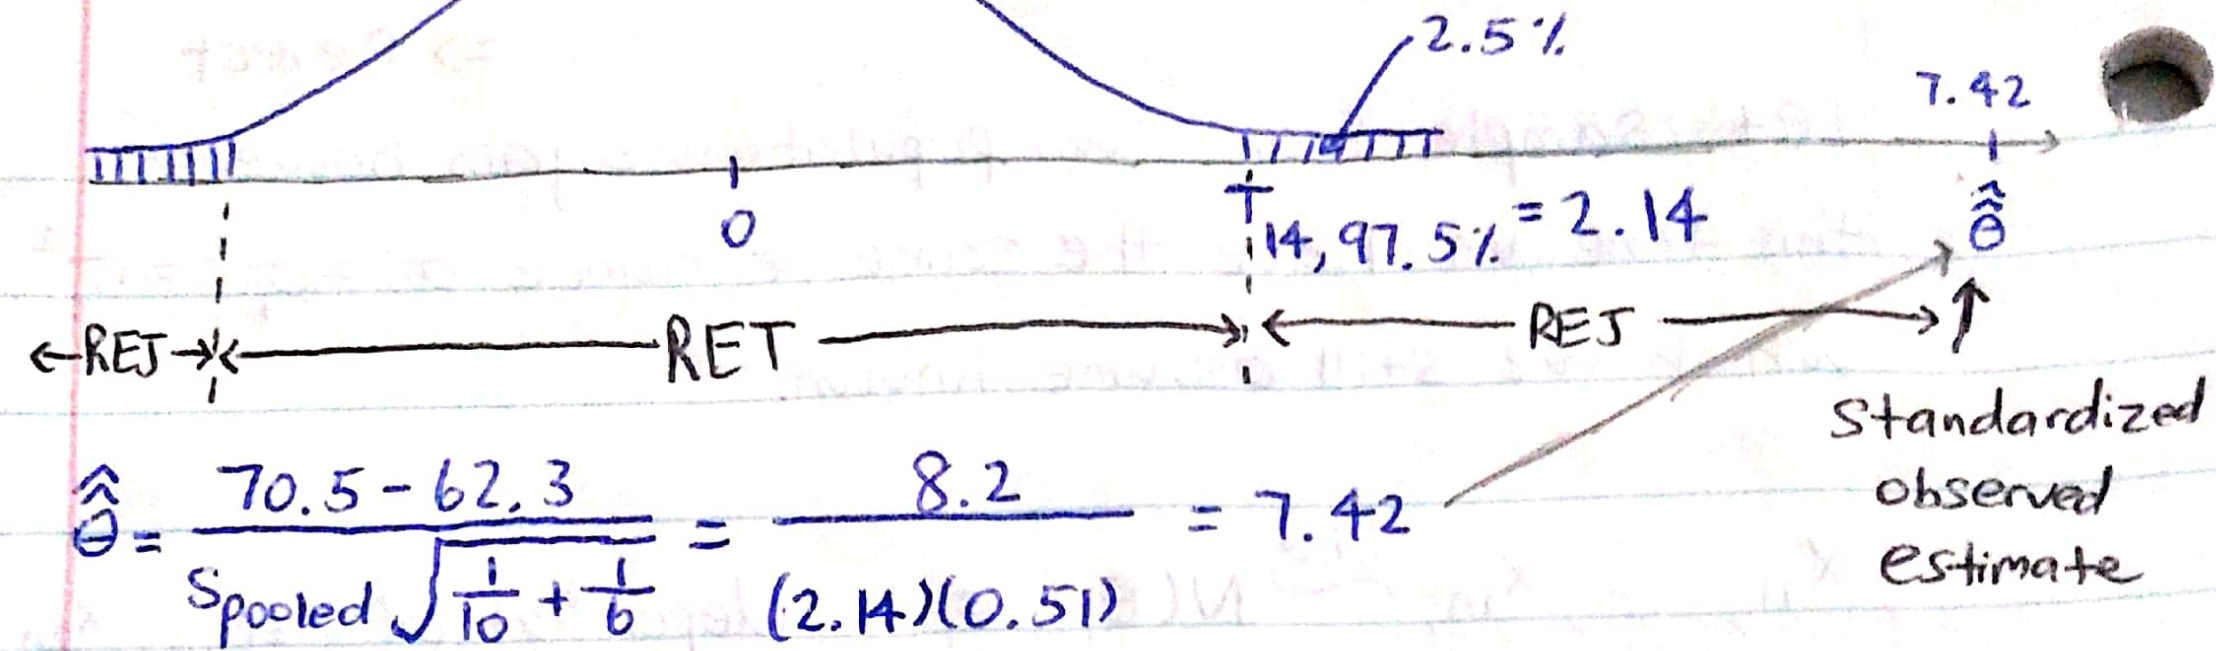 2.5%
7.42
0
T 14, 97.5% = 2.14
θ̂̂
REJ RET REJ
Standardized
observed
estimate
θ̂̂ = (70.5 - 62.3) / (Spooled √(1/10 + 1/6)) = 8.2 / ((2.14)(0.51)) = 7.42